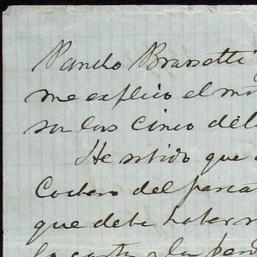 Pancho Brassetti
me esplico el mo
son las cinco de la
He sabido que
Cochero del pasa
que debe haber
la carta y la